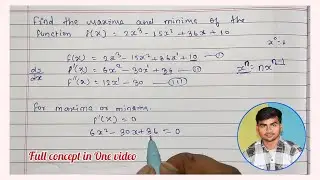 Find the maxima and minima of the
function f(x) = 2x³ - 15x² + 36x + 10
f(x) = 2x³ - 15x² + 36x + 10 — (I)
f'(x) = 6x² - 30x + 36 — (II)
f''(x) = 12x - 30 — (III)
xⁿ = nxⁿ⁻¹
For maxima or minima.
f'(x) = 0
6x² - 30x + 36 = 0
Full concept in One video